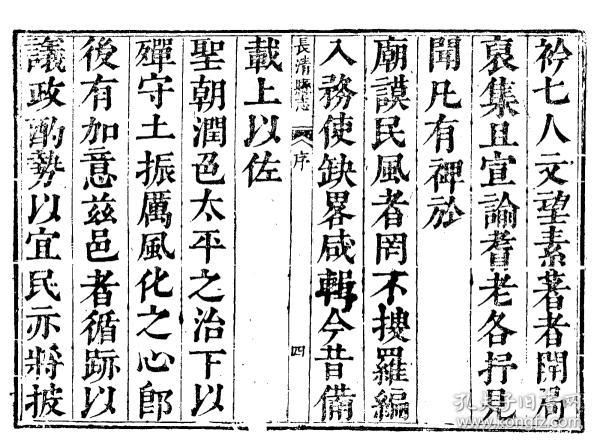 衿七人文望素著者開局
裒集且宣諭耆老各抒見
聞凡有裨於
廟謨民風者罔不搜羅編
入務使缺畧咸輯今昔備
長清縣志 序 四
載上以佐
聖朝潤色太平之治下以
殫守土振厲風化之心郎
後有加意兹邑者循跡以
議政酌勢以宜民亦將披
孔夫子旧书网
www.kongfz.com